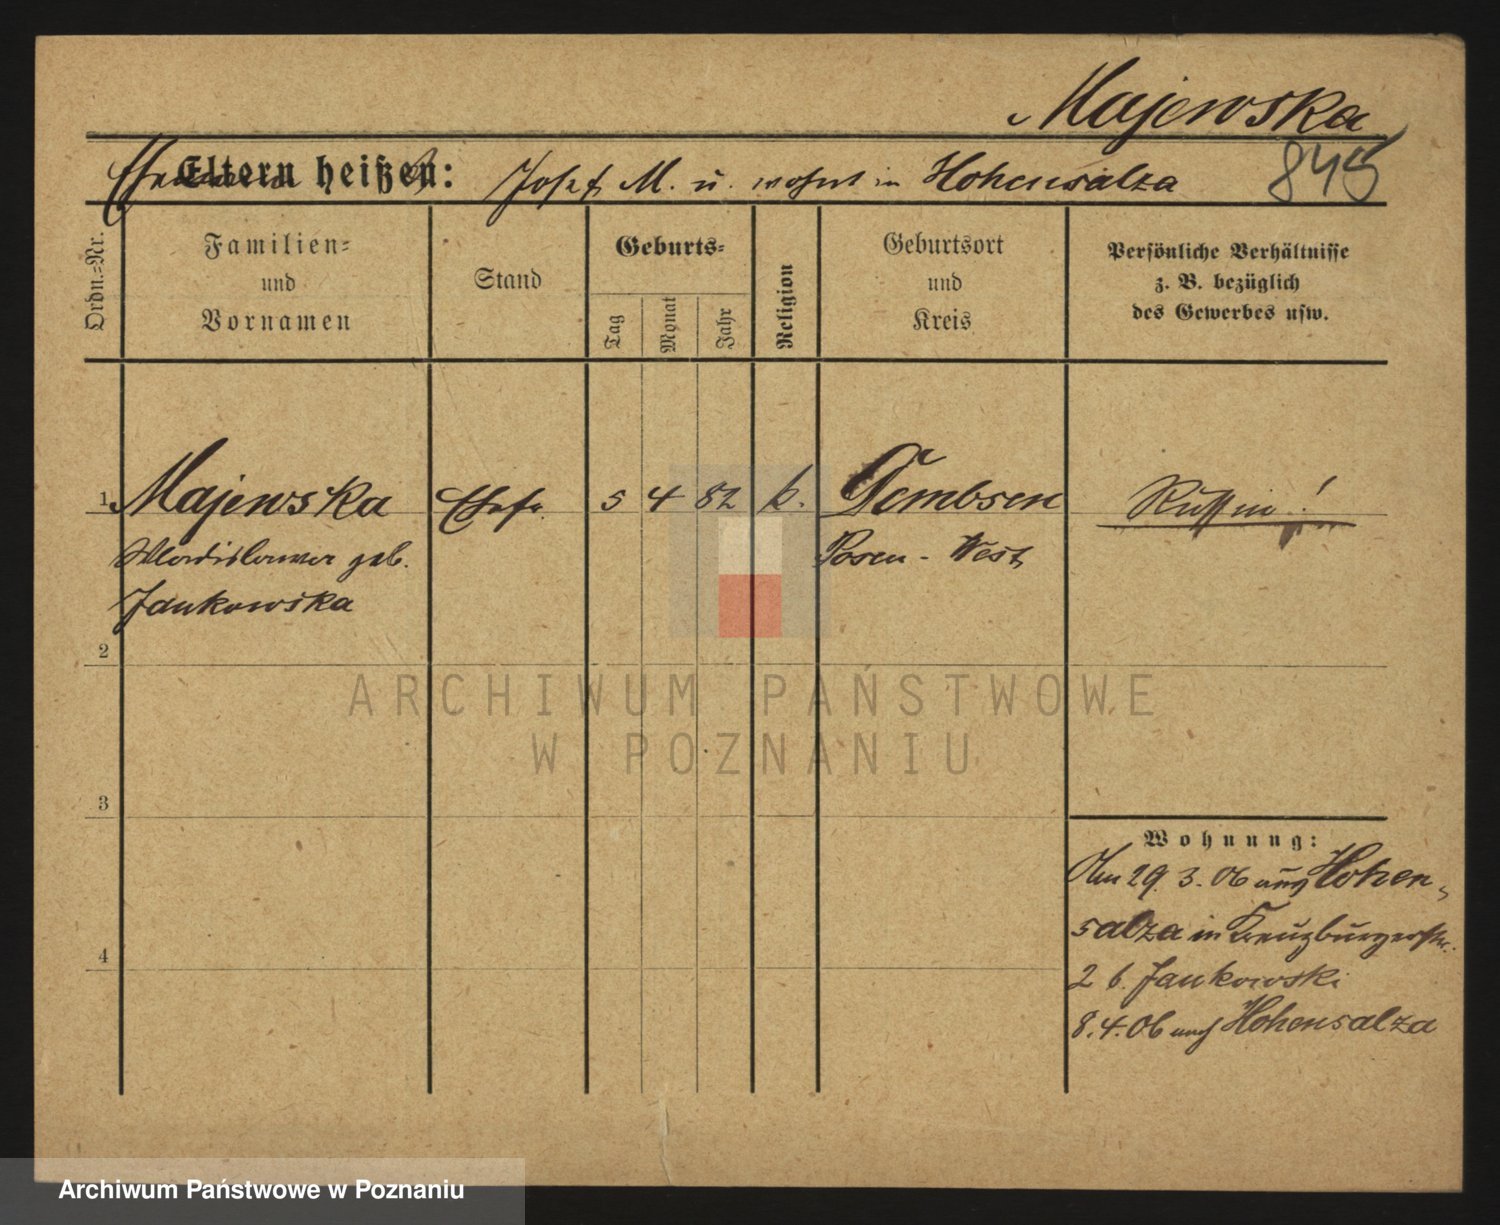 Majewska
845
Ehemann heißt:
Eltern heißen:
Josef M. u. wohnt in Hohensalza
Ordn.=Nr.
Familien=
und
Vornamen
Stand
Geburts=
Tag
Monat
Jahr
Religion
Geburtsort
und
Kreis
Persönliche Verhältnisse
z. B. bezüglich
des Gewerbes usw.
1 Majewska Ehefr. 5 4 82 k. Dembsen Russin!
Wladislawa geb. Posen - West
Jankowska
2
3
4
Wohnung:
Am 29. 3. 06 aus Hohen-
salza in Kreuzburgerstr.
2 b. Jankowski
8.4.06 nach Hohensalza
ARCHIWUM PAŃSTWOWE
W POZNANIU
Archiwum Państwowe w Poznaniu